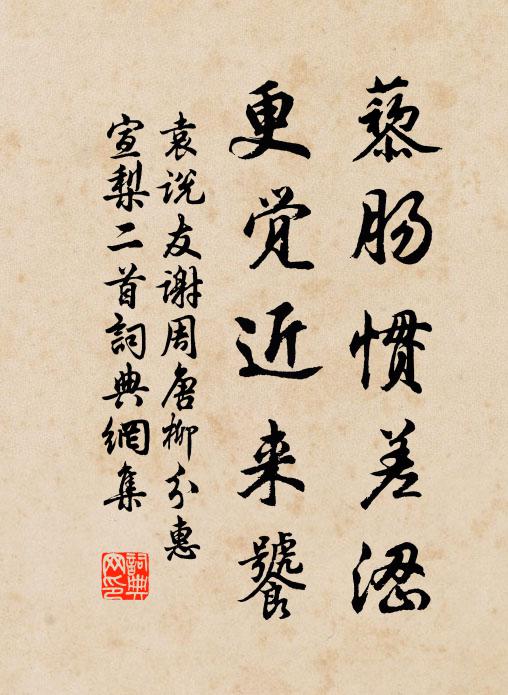 藜肠惯差涩
更觉近来饕
袁说友谢周唐柳分惠
宣梨二首詞典網集
詞典
网印